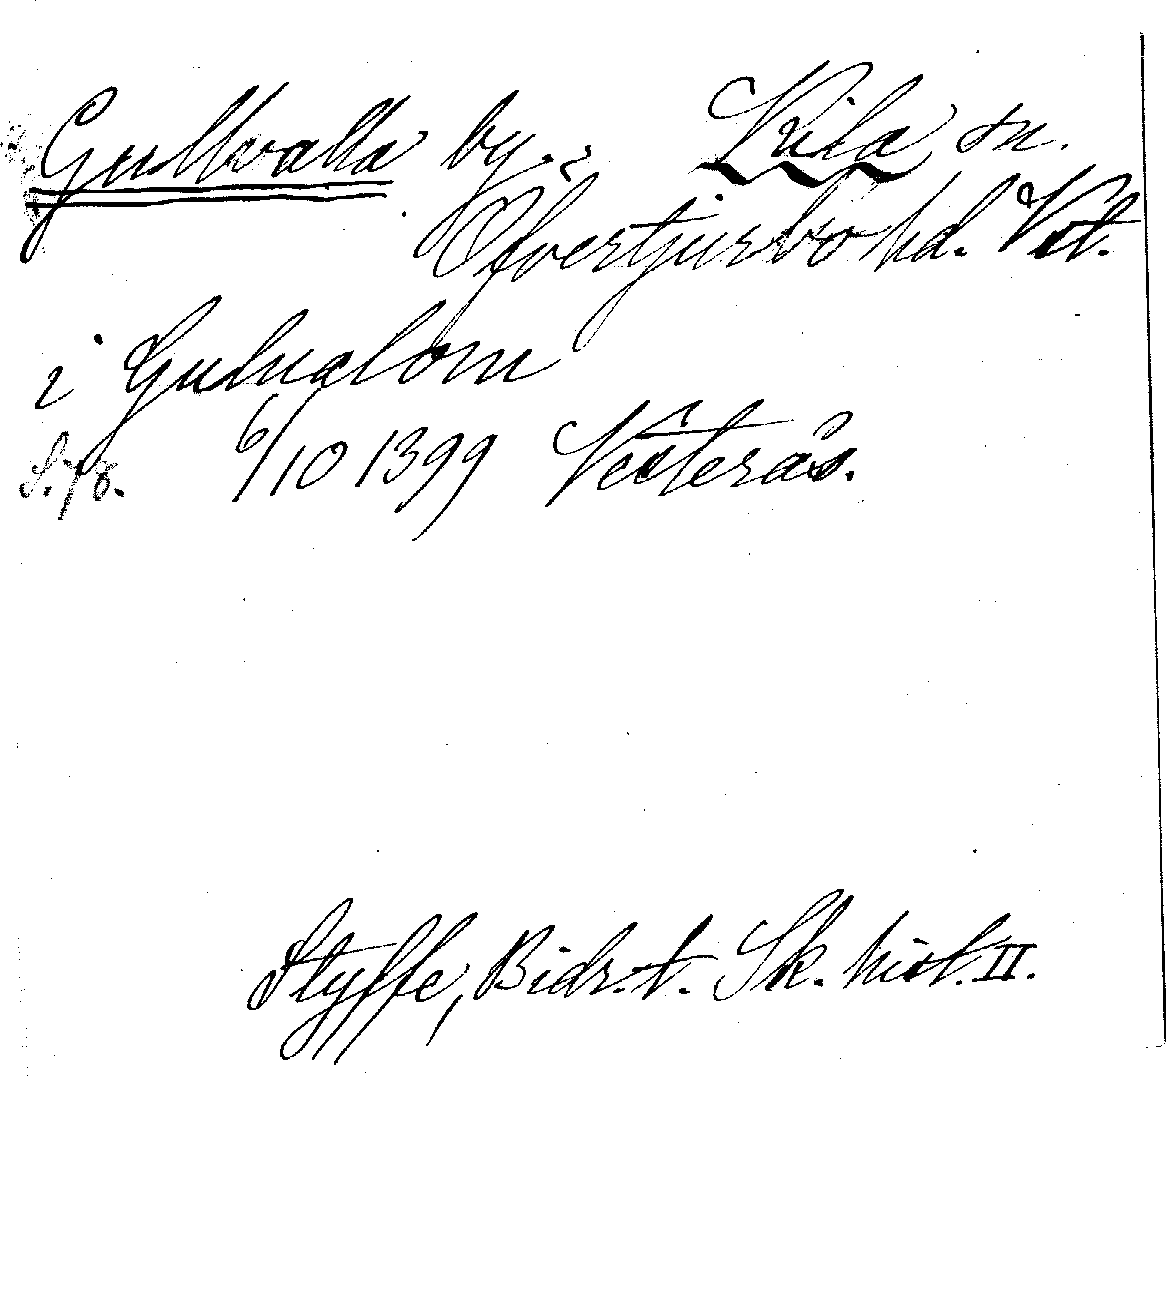 Gullvalla by. Kila sn.
Öfvertjurbo hd. Vst.
i Gulualom
S. 78. 6/10 1399 Vesterås.
Styffe, Bidr. t. Sk. hist. II.